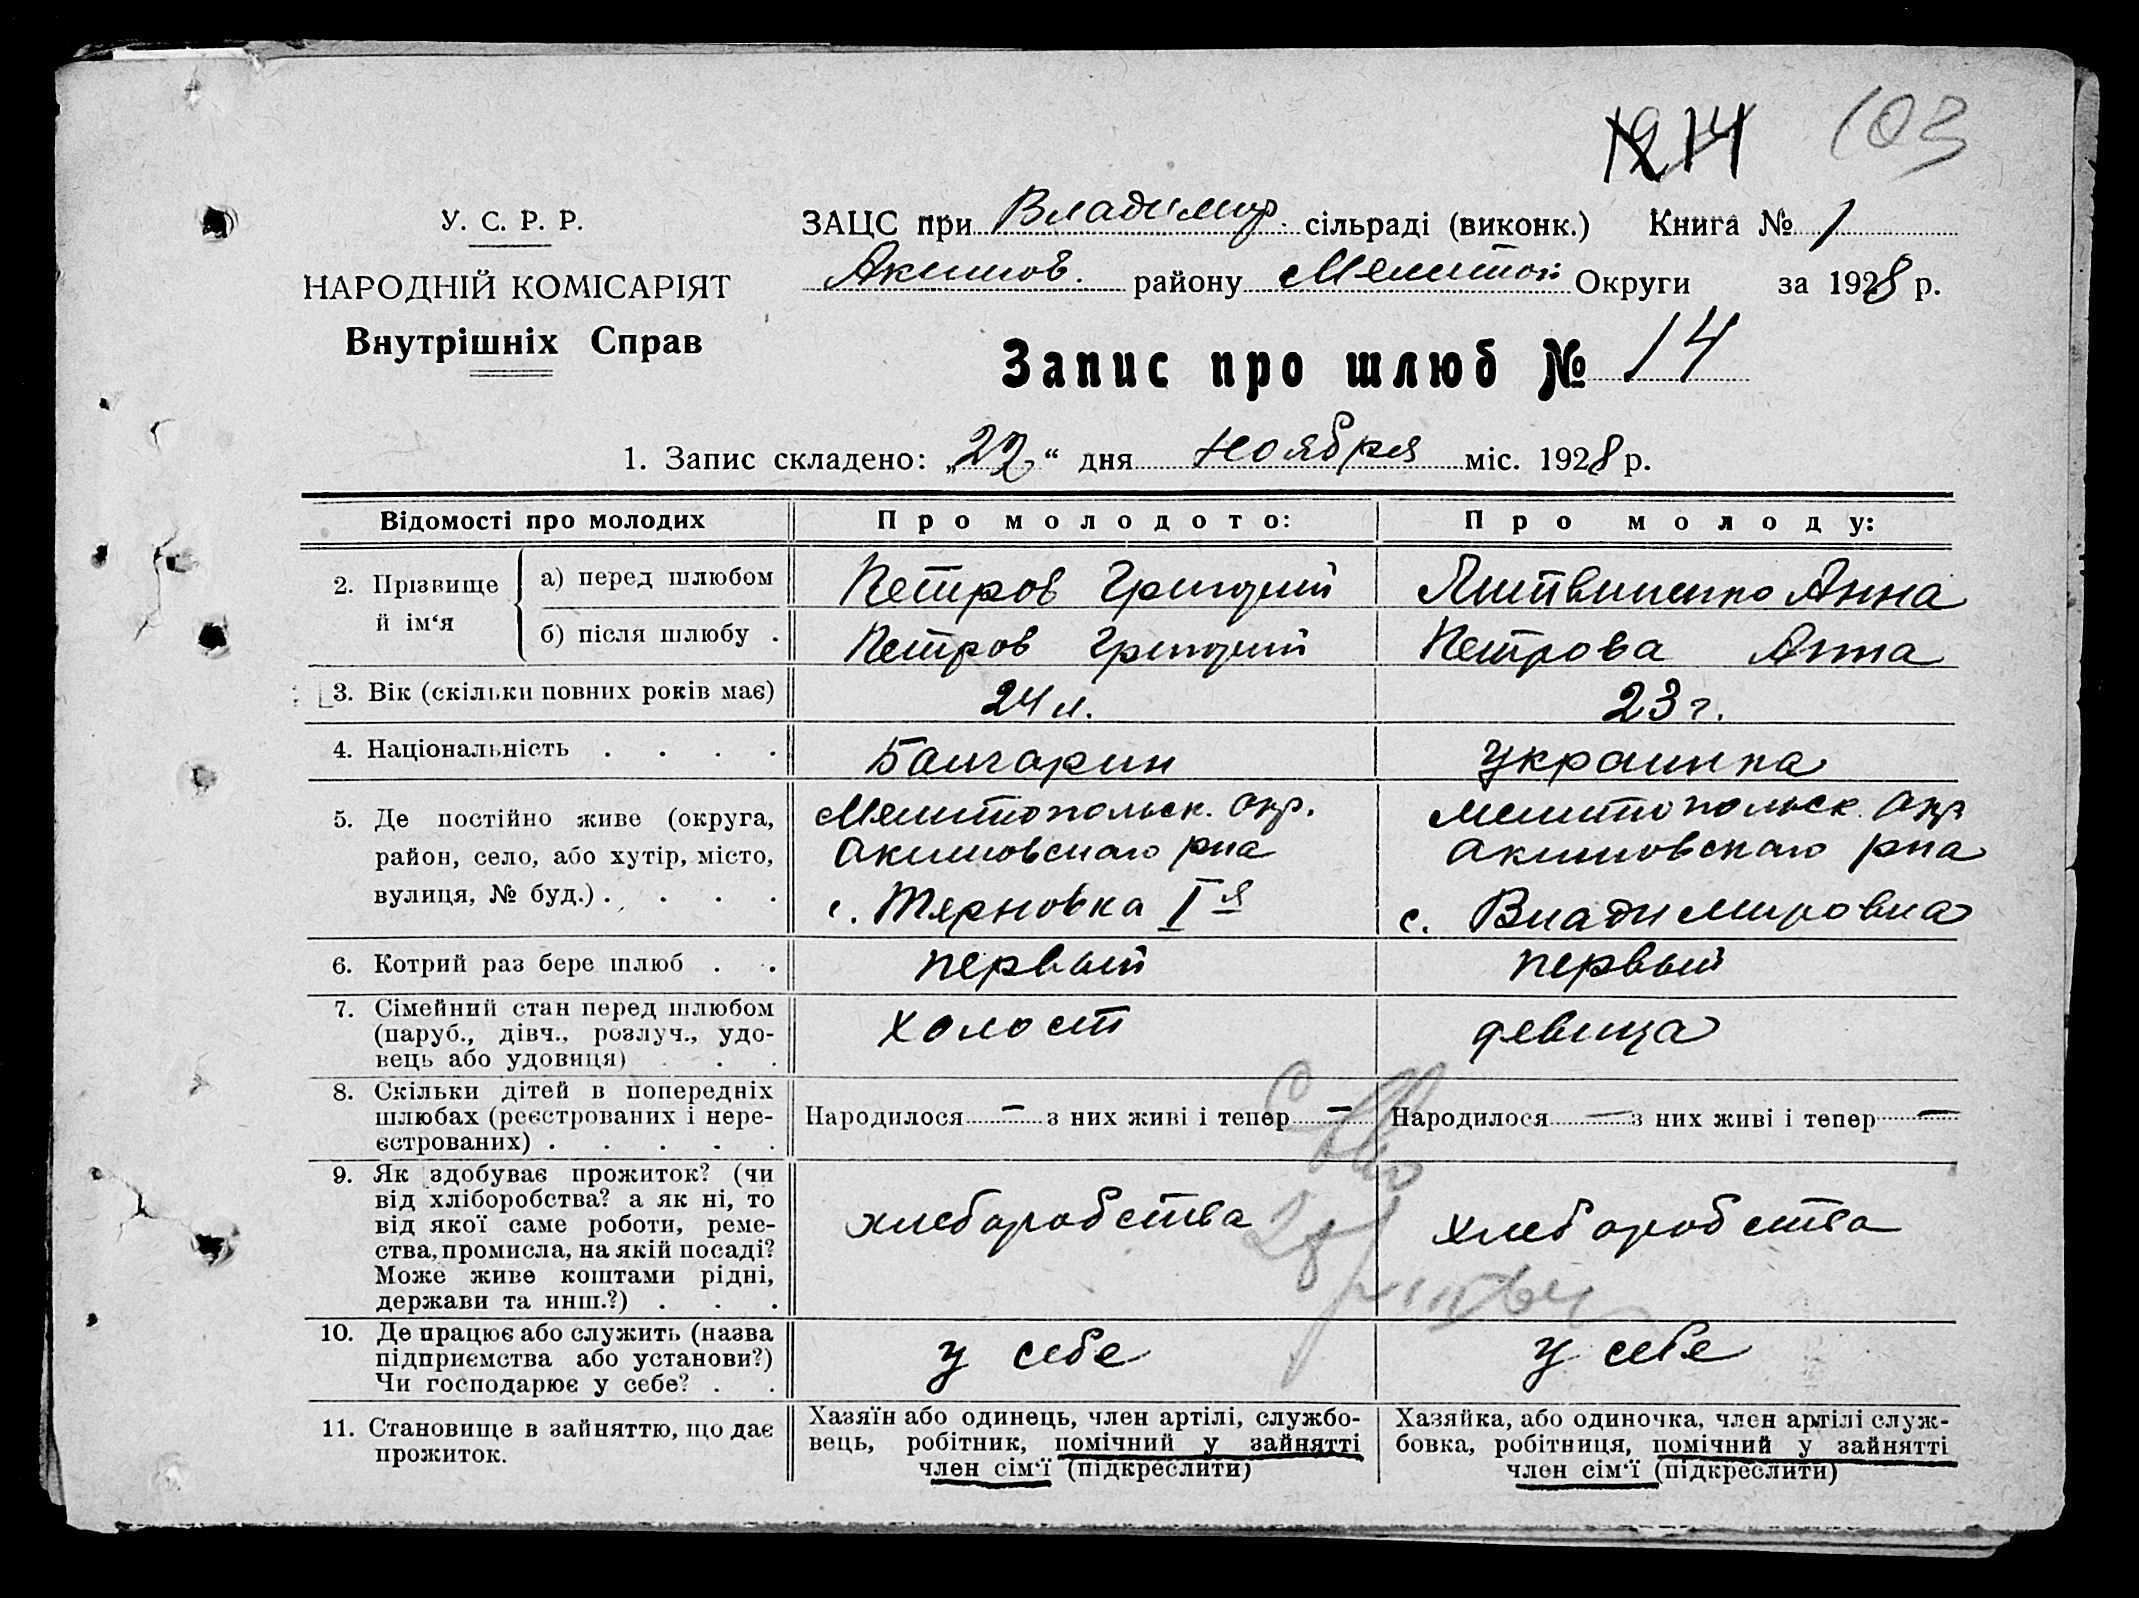 14 103
У. С. Р. Р.
НАРОДНІЙ КОМІСАРІЯТ
Внутрішніх Справ
ЗАЦС при Владимир. сільраді (виконк.) Книга № 1
Акимов. району Мелитоп Округи за 1928 р.
Запис про шлюб № 14
1. Запис складено: „22“ дня ноября міс. 1928 р.
Відомості про молодих
Про молодого:
Про молоду:
2. Прізвище й ім‘я
а) перед шлюбом
Петров Григорий
Литвиненко Анна
б) після шлюбу .
Петров Григорий
Петрова Анна
3. Вік (скільки повних років має)
24 л.
23 г.
4. Національність . . . .
Болгарин
Украинка
5. Де постійно живе (округа,
район, село, або хутір, місто,
вулиця, № буд.) . . . .
Мелитопольск. Окр.
Акимовскаго рна
с. Терновка I я
Мелитопольск. Окр
Акимовскаго рна
с. Владимировка
6. Котрий раз бере шлюб . .
первый
первый
7. Сімейний стан перед шлюбом
(паруб., дівч., розлуч., удо-
вець або удовиця) . . .
холост
девица
8. Скільки дітей в попередніх
шлюбах (реєстрованих і нере-
єстрованих) . . . . .
Народилося — з них живі і тепер —
Народилося — з них живі і тепер —
9. Як здобуває прожиток? (чи
від хліборобства? а як ні, то
від якої саме роботи, реме-
ства, промисла, на якій посаді?
Може живе коштами рідні,
держави та инш.?) . . .
хлеборобства
хлеборобства
10. Де працює або служить (назва
підприємства або установи?)
Чи господарює у себе? . .
у себе
у себе
11. Становище в зайняттю, що дає
прожиток.
Хазяїн або одинець, член артілі, службо-
вець, робітник, помічний у зайнятті
член сім‘ї (підкреслити)
Хазяйка, або одиночка, член артілі служ-
бовка, робітниця, помічний у зайнятті
член сім‘ї (підкреслити)